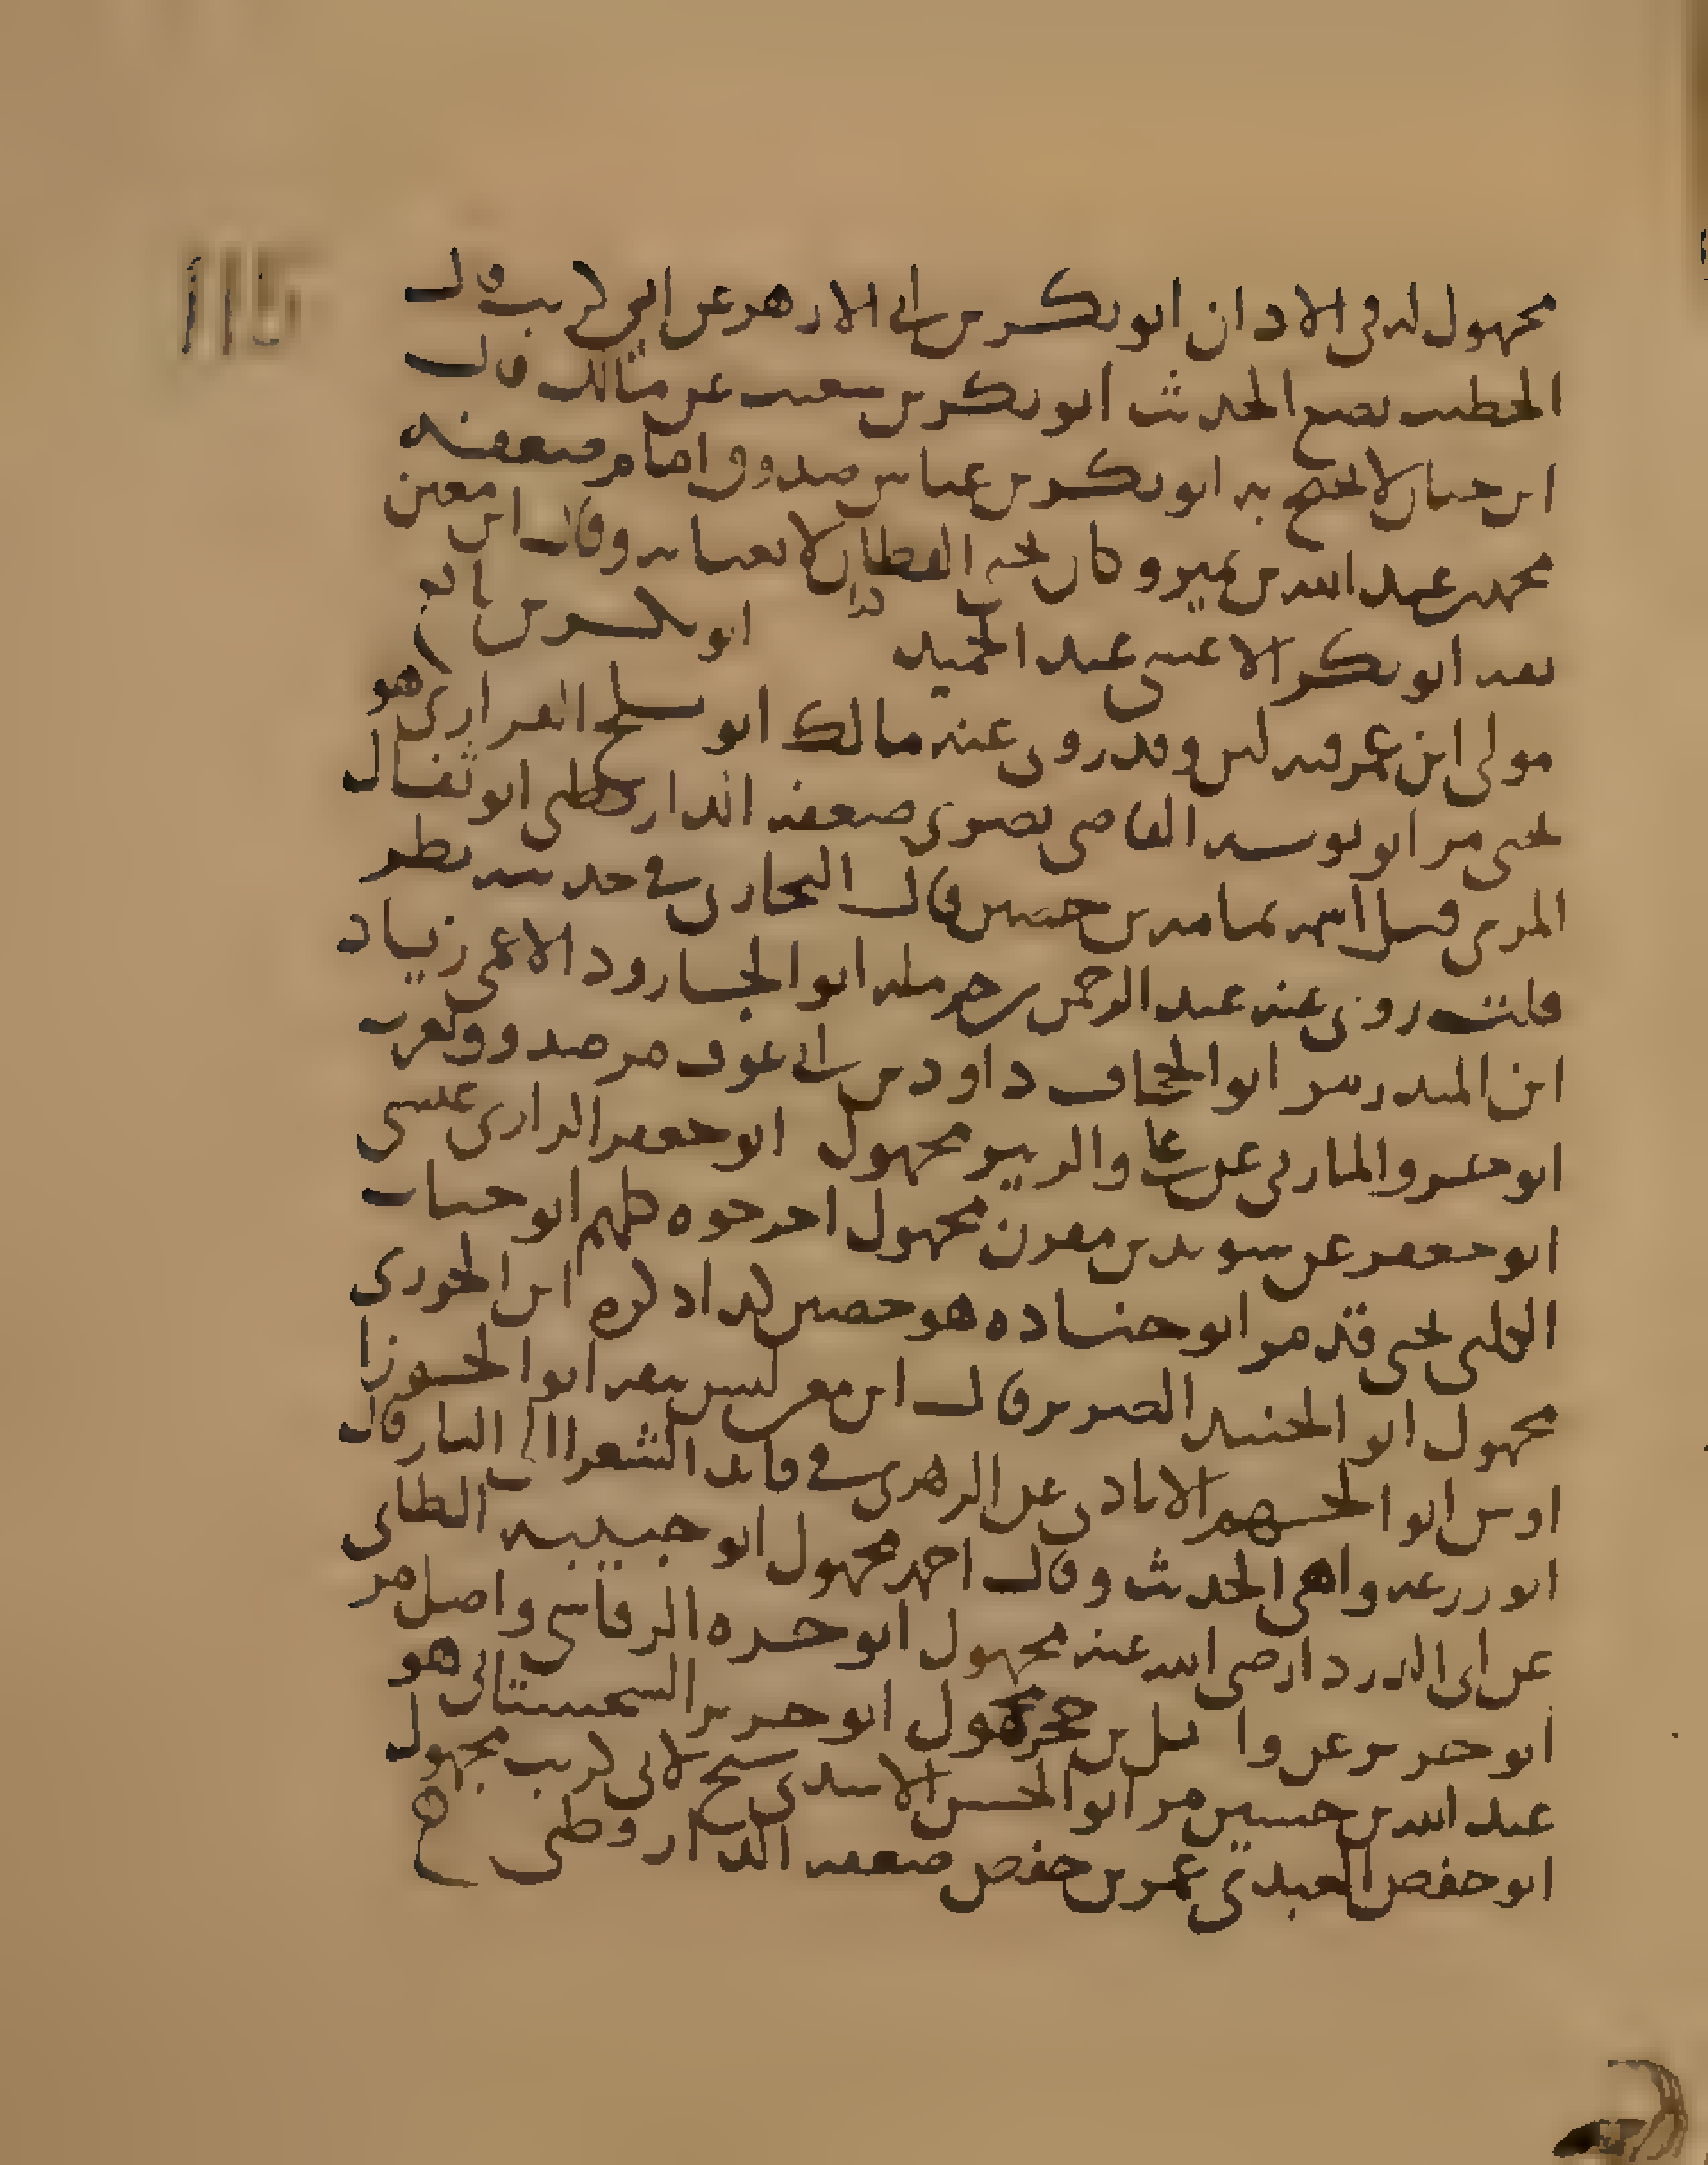 مجهول له في الاذان ابو بكر بن ابي الازهر عن ابي كريب قال
الخطيب يضع الحديث ابو بكر بن شعيب عن مالك قال
ابن حبان لا يحتج به ابو بكر بن عياش صدوق امام ضعفه
محمد بن عبد الله بن نمير وكان يحيى القطان لا يعبا به وقال ابن معين
ثقه ابو بكر الاعشى عبد الحميد ابو بكر بن نافع
مولى ابن عمر فيه لين وقد روى عنه مالك ابو بلج الفزاري هو
يحيى مر ابو القاضي بصري ضعفه الدارقطني ابو ثفال
المري قيل اسمه ثمامه بن حصين قال البخاري في حديثه نظر
قلت روى عنه عبد الرحمن بن حرمله ابو الجارود الاعمى زياد
ابن المنذر مر ابو الجحاف داود بن ابي عوف مر صدوق
ابو عمرو المازني عن علي والزبير مجهول ابو جعفر الرازي عيسى
ابو جعفر عن سويد بن مقرن مجهول اخرجوه كلهم ابو جناب
الكلبي يحيى قد مر ابو جناده هو حصين كذا ذكره ابن الجوزي
مجهول ابو الجنيد الضرير قال ابن معين ليس بثقه ابو الجوزا
اوس ابو الجهم الايادي عن الزهري في قائد الشعرا الى النار قال
ابو زرعه واهي الحديث وقال احمد مجهول ابو حبيبه الطائي
عن ابي الدرداء رضي الله عنه مجهول ابو حره الرقاشي واصل مر
ابو حريز عن وائل بن حجر مجهول ابو حريز السجستاني هو
عبد الله بن حسين مر ابو الحسن الاسدي شيخ لابي كريب مجهول
ابو حفص العبدي عمر بن حفص ضعفه الدارقطني